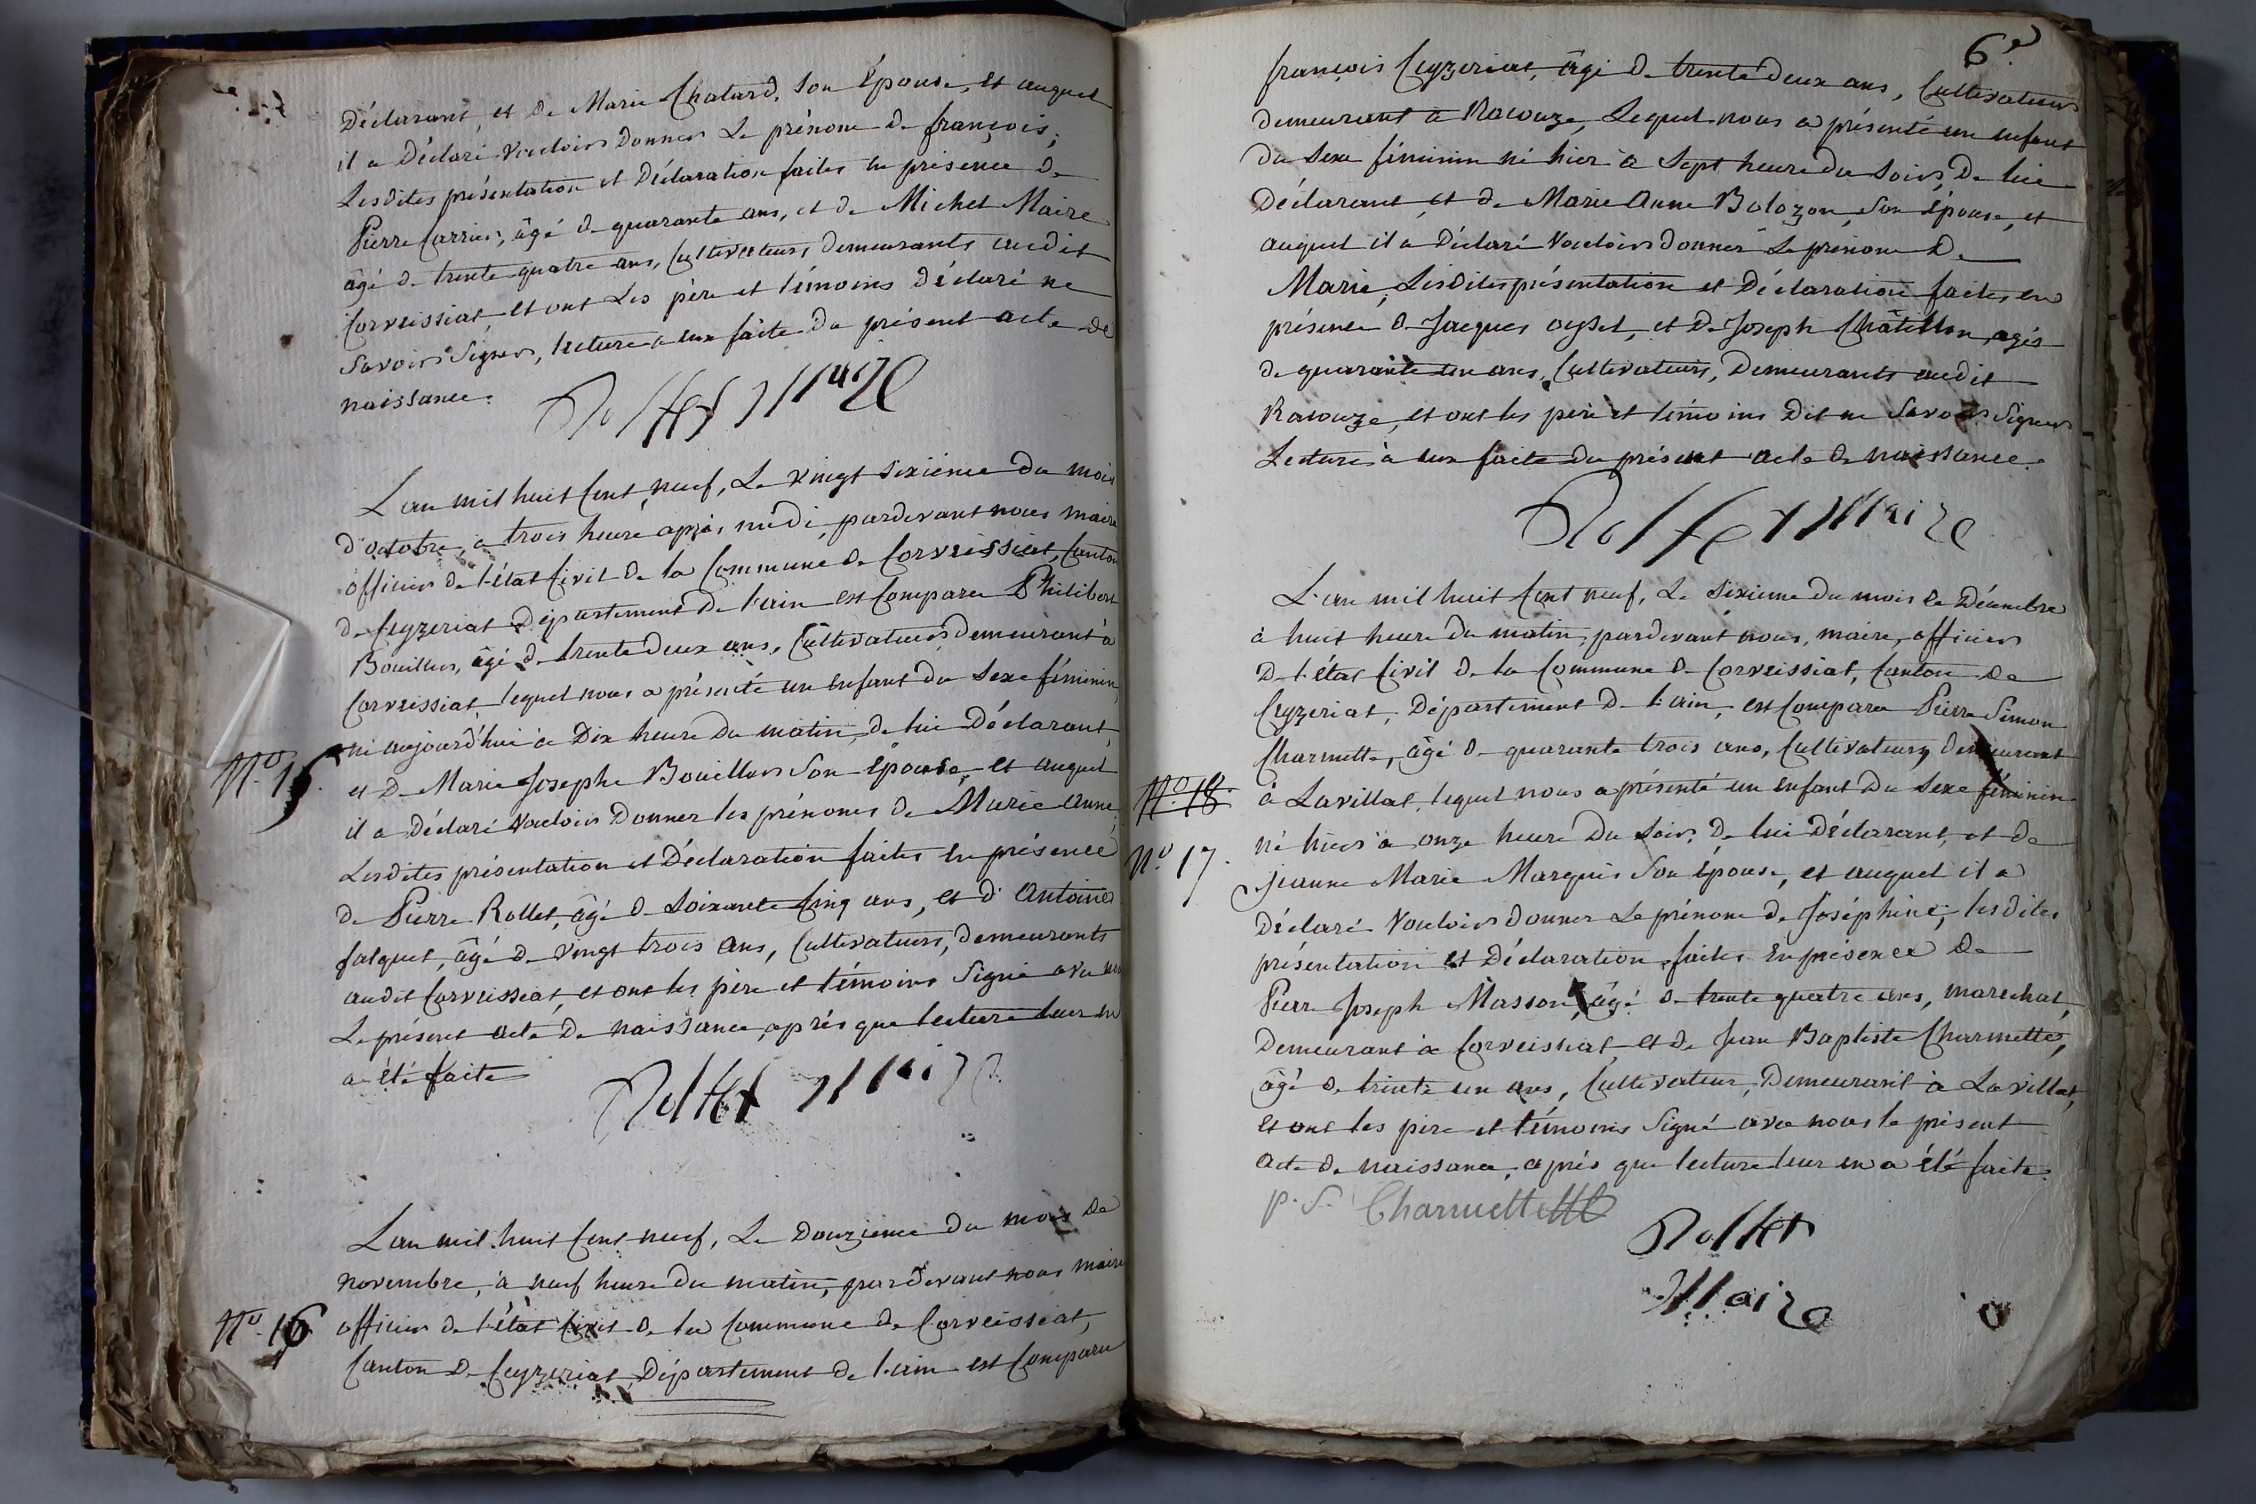 Déclarant, et de Marie Chatard, son épouse, et auquel
il a Déclaré vouloir donner le prénom de françois;
Lesdites présentation et Déclaration faites en présence de
Pierre Carrier, âgé de quarante ans, et de Michel Maire
âgé de trente quatre ans, Cultivateurs demeurants audit
Corveissiat, et ont les père et témoins déclaré ne
savoir signer, lecture a eux faite du présent acte de
naissance.
Rollet Maire
L'an mil huit Cent neuf, Le vingt sixième du mois
d'octobre, a trois heure après midi, pardevant nous maire
officier de l'état Civil de la Commune de Corveissiat, Canton
de Ceyzeriat Département de l'ain est Comparu Philibert
Bouillier, âgé de trente deux ans, Cultivateur demeurant à
Corveissiat, lequel nous a présenté un enfant du sexe féminin
N.o 15
né aujourd'hui à Dix heure du matin, de lui Déclarant,
et de Marie Josephe Bouillier son épouse, et auquel
il a Déclaré vouloir Donner les prénoms de Marie anne;
Lesdites présentation et Déclaration faites en présence
de Pierre Rollet, âgé de soixante Cinq ans, et d'Antoine
falquet, âgé de vingt trois ans, Cultivateurs, demeurants
audit Corveissiat, et ont les père et témoins signé avec nous
Le présent acte de naissance, après que lecture leur en
a été faite
Rollet Maire
L'an mil huit Cent neuf, Le Douzième du mois de
novembre, à neuf heure du matin, pardevant nous maire
N.o 16
officier de l'état Civil de la Commune de Corveissiat,
Canton de Ceyzeriat, Département de l'ain est Comparu
6.e
françois Ceyzeriat, âgé de trente deux ans, Cultivateur
demeurant à Racouze, Lequel nous a présenté un enfant
du sexe féminin né hier à sept heure du soir, de lui
Déclarant, et de Marie Anne Bolozon, son épouse, et
auquel il a Déclaré vouloir donner Le prénom de
Marie, Lesdites présentation et Déclaration faites en
présence de Jacques et de Joseph Châtillon, agés
de quarante un ans, Cultivateurs, Demeurants audit
Racouze, et ont les père et témoins Dit ne savoir signer
Lecture à eux faite du présent acte de naissance.
Rollet Maire
L'an mil huit Cent neuf, Le sixième du mois de Décembre
à huit heure du matin, pardevant nous, maire, officier
De l'état Civil de la Commune de Corveissiat, Canton de
Ceyzeriat, Département de l'ain, est Comparu Pierre Simon
Charmette, âgé de quarante trois ans, Cultivateur, demeurant
N.o 18.
à Lavillat, lequel nous a présenté un enfant du sexe féminin
N.o 17.
né hier à onze heure du soir, de lui Déclarant, et de
Jeanne Marie Marquis son épouse, et auquel il a
Déclaré vouloir donner Le prénom de Joséphine; lesdites
présentation et Déclaration faites en présence de
Pierre Joseph Masson, âgé de trente quatre ans, marechal,
Demeurant à Corveissiat, et de Jean Baptiste Charmette,
âgé de trente un ans, Cultivateur, Demeurant à Lavillat,
et ont les père et témoins signé avec nous le présent
acte de naissance, après que lecture leur en a été faite.
p. S. Charmette
Rollet
Maire